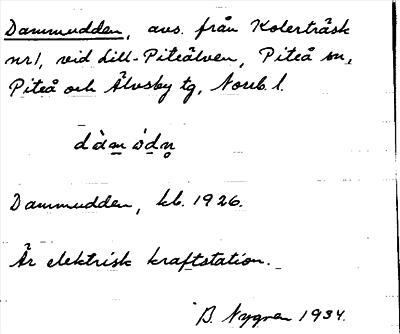 Dammudden, avs. från Kolerträsk
nr 1, vid Lill-Piteälven, Piteå sn,
Piteå och Älvsby tg, Norrb. l.
dàm ódn̥
Dammudden, kb. 1926.
Är elektrisk kraftstation.
B. Nygren 1934.